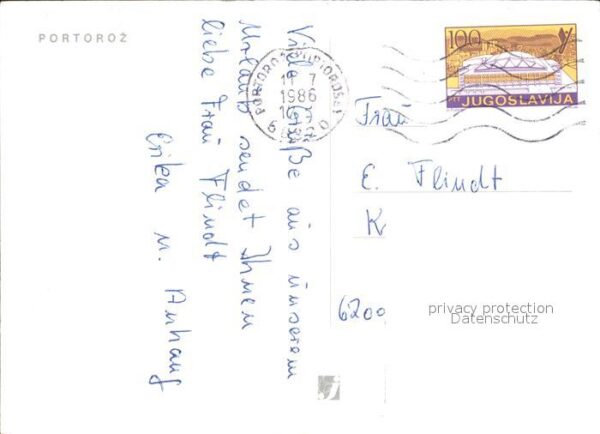 PORTOROŽ
Viele Grüße aus unserem
Urlaub sendet Ihnen
liebe Frau Flindt
Erika u. Anhang
PORTOROŽ
1986
100
JUGOSLAVIJA
Frau
E. Flindt
K
6200
privacy protection
Datenschutz